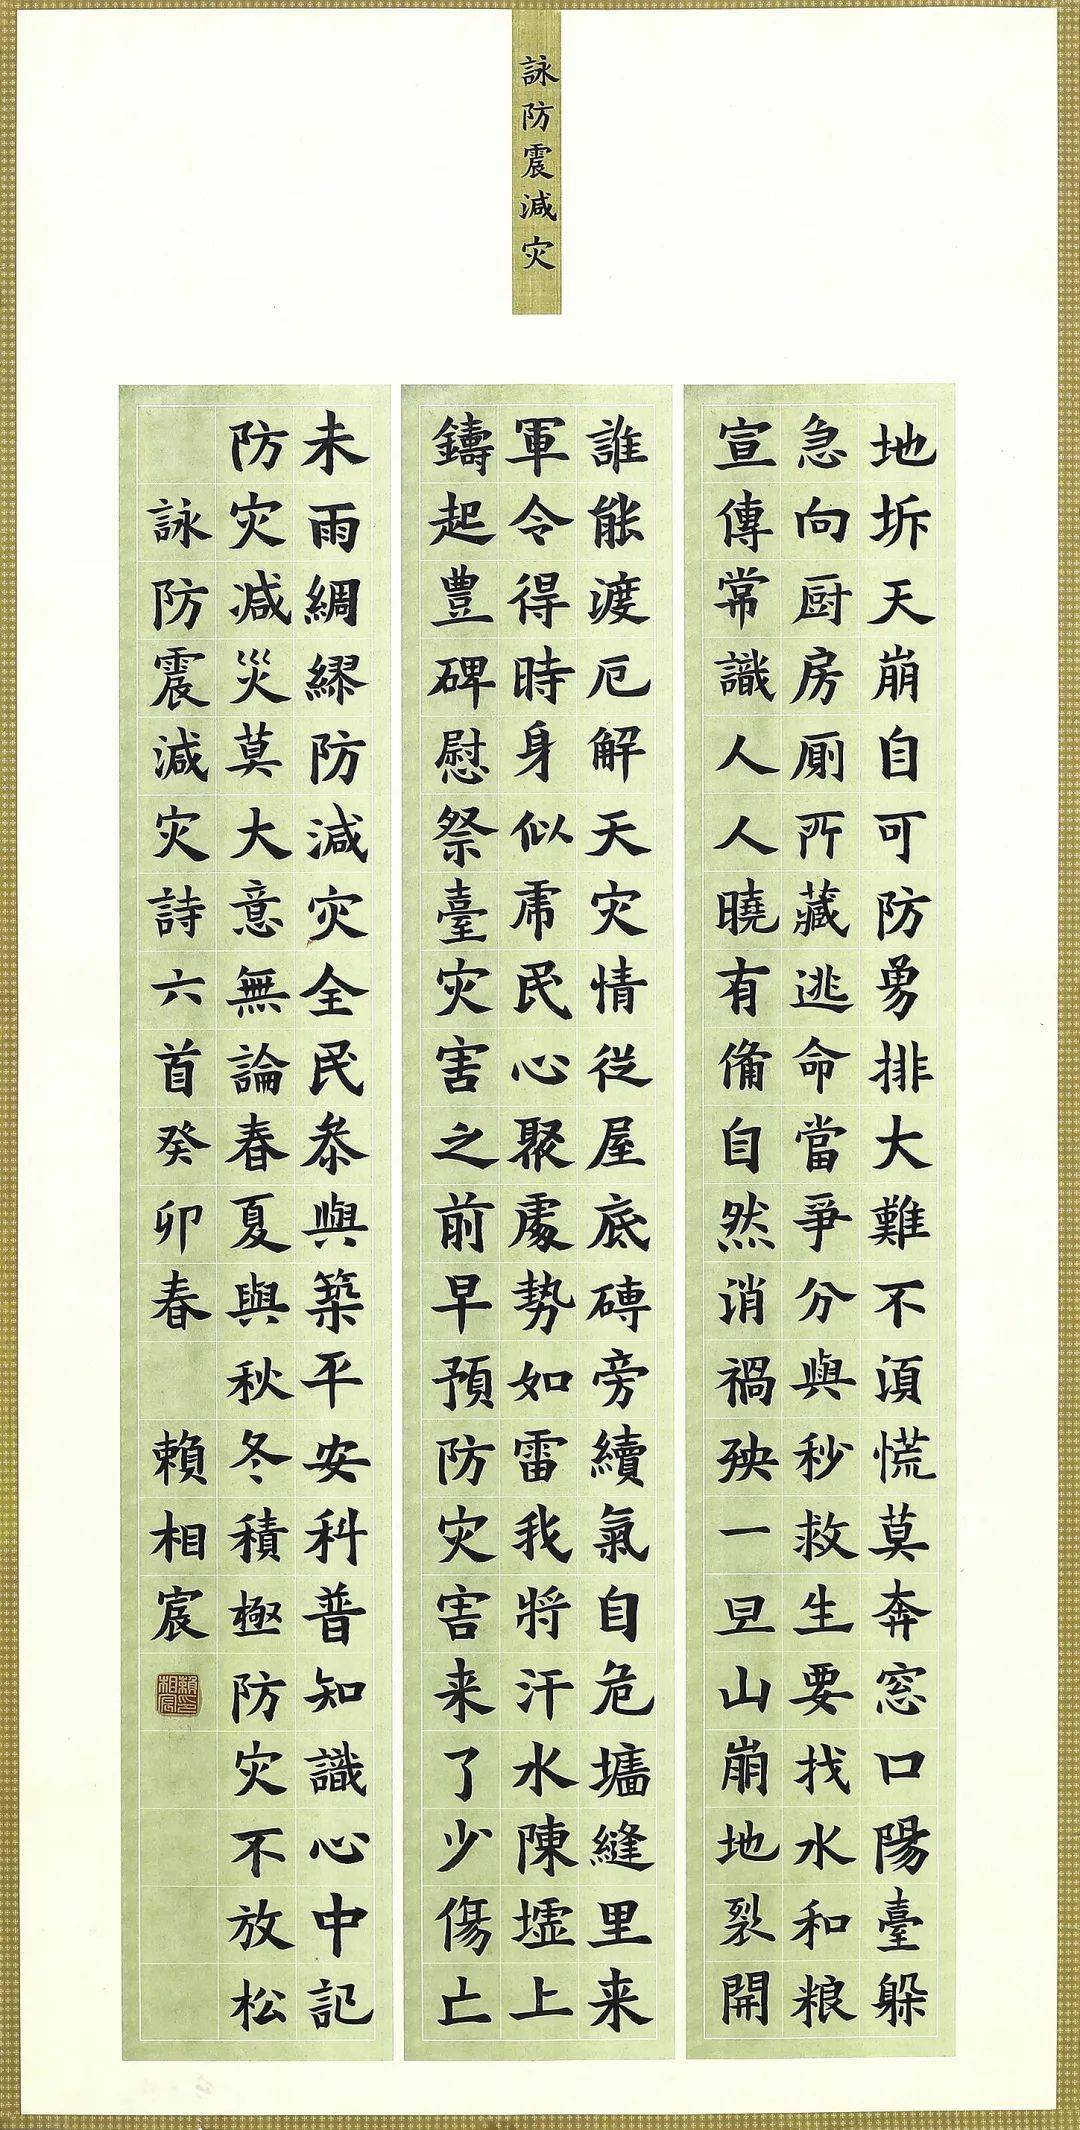 詠防震減灾
地坼天崩自可防勇排大難不湏慌莫奔窓口陽臺躲
急向厨房厠所藏逃命當爭分與秒救生要找水和粮
宣傳常識人人曉有俻自然消禍殃一旦山崩地裂開
誰能渡厄解天灾情從屋底磚旁續氣自危墻縫里来
軍令得時身似虎民心聚處勢如雷我將汗水陳墟上
鑄起豊碑慰祭臺灾害之前早預防灾害来了少傷亡
未雨綢繆防減灾全民叅與築平安科普知識心中記
防灾减災莫大意無論春夏與秋冬積極防灾不放松
詠防震減灾詩六首癸卯春 賴相宸
賴相宸印